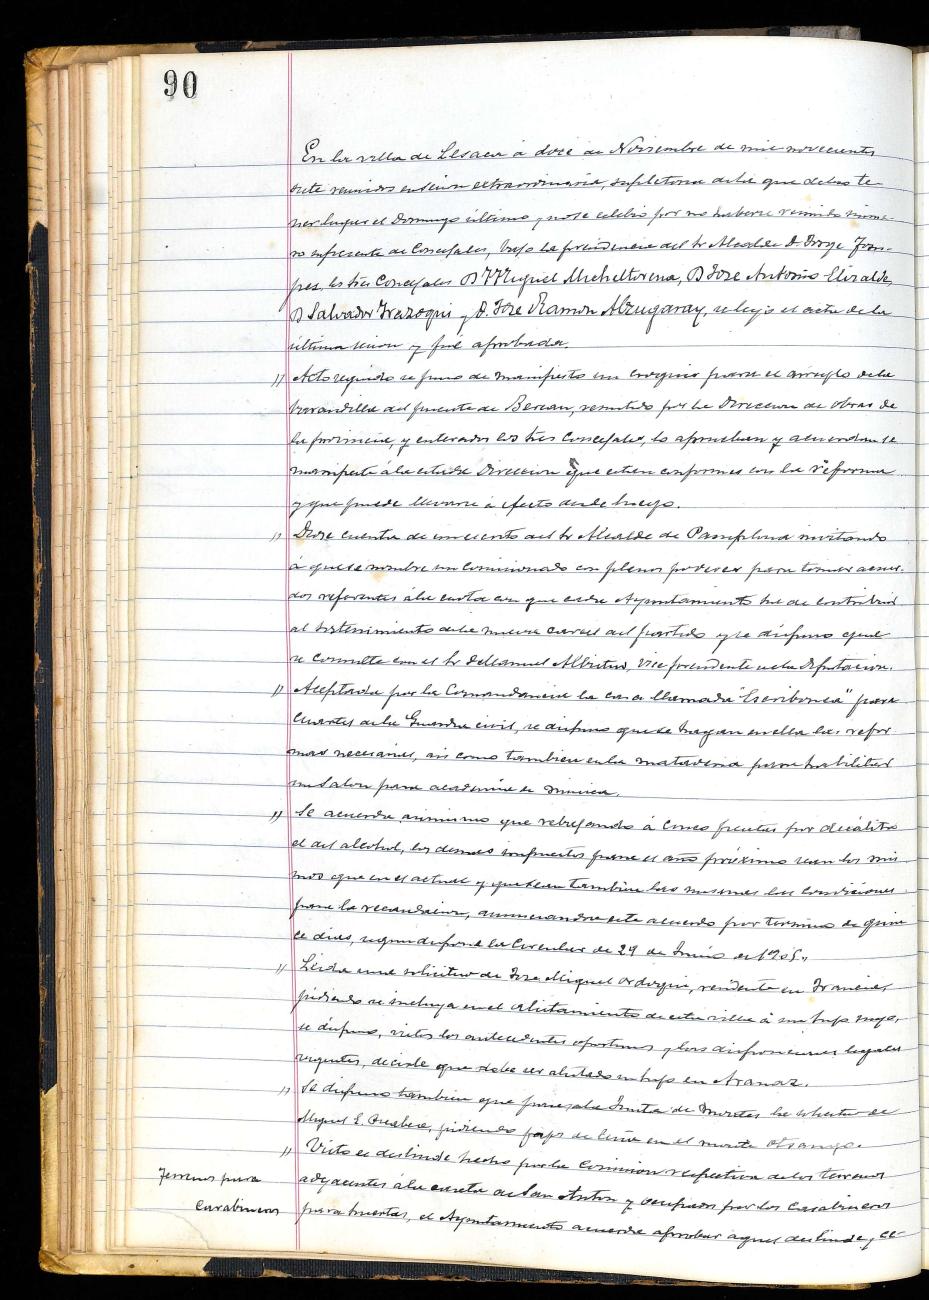 90
En la villa de Lesaca á doce de Noviembre de mil novecientos
siete reunidos en sesion extraordinaria, supletoria de la que debio te-
ner lugar el Domingo último y no se celebró por no haberse reunido núme-
ro suficiente de Concejales, bajo la presidencia del Sr Alcalde D. Jorge
los tres Concejales D Miguel Micheltorena, D Jose Antonio Elizalde,
D Salvador Irazoqui y D. Jose Ramon Alzugaray, se leyó el acta de la
última sesion y fué aprobada.
" Acto seguido se puso de manifiesto un croquis para el arreglo de la
barandilla del puente de Berean, remitido por la Direccion de obras de
la provincia, y enterados los tres Concejales, lo aprueban y acuerdan se
manifieste á la citada Direccion que estan conformes con la reforma
y que puede llevarse á efecto desde luego.
" Diose cuenta de un escrito del Sr Alcalde de Pamplona invitando
á que se nombre un Comisionado con plenos poderes para tomar acuer-
dos referentes á la cuota con que cada Ayuntamiento ha de contribuir
al sostenimiento de la nueva carcel del partido y se dispuso que
se consulte con el Sr D Manuel Albistur, vice presidente de la Diputacion.
" Aceptada por la Comandancia la casa llamada "Escribonea" para
Cuartel de la Guardia civil, se dispuso que se hagan en ella las refor-
mas necesarias, asi como tambien en la mataderia para habilitar
un Salon para academia de música.
" Se acuerda asimismo que rebajando á cinco pesetas por decálitro
el del alcohol, los demas impuestos para el año próximo sean los mis-
mos que en el actual y que sean tambien las mismas las condiciones
para la recaudacion, anunciandose este acuerdo por termino de quin-
ce dias, segun dispone la Circular de 29 de Junio de 1905.
" Leida una solicitud de Jose Miguel Ordoqui, residente en Francia,
pidiendo se incluya en el alistamiento de esta villa á un hijo suyo,
se dispuso, vistos los antecedentes oportunos y las disposiciones legales
vigentes, decirle que debe ser alistado su hijo en Aranaz.
" Se dispuso tambien que pase á la Junta de Montes la solicitud de
Miguel E. pidiendo de leña en el monte
" Visto el deslinde hecho por la Comision respectiva de los terrenos
adyacentes á la caseta de San Anton y ocupados por los Carabineros
para huertas, el Ayuntamiento acuerda aprobar aquel deslinde, y ce-
Terrenos para
Carabineros